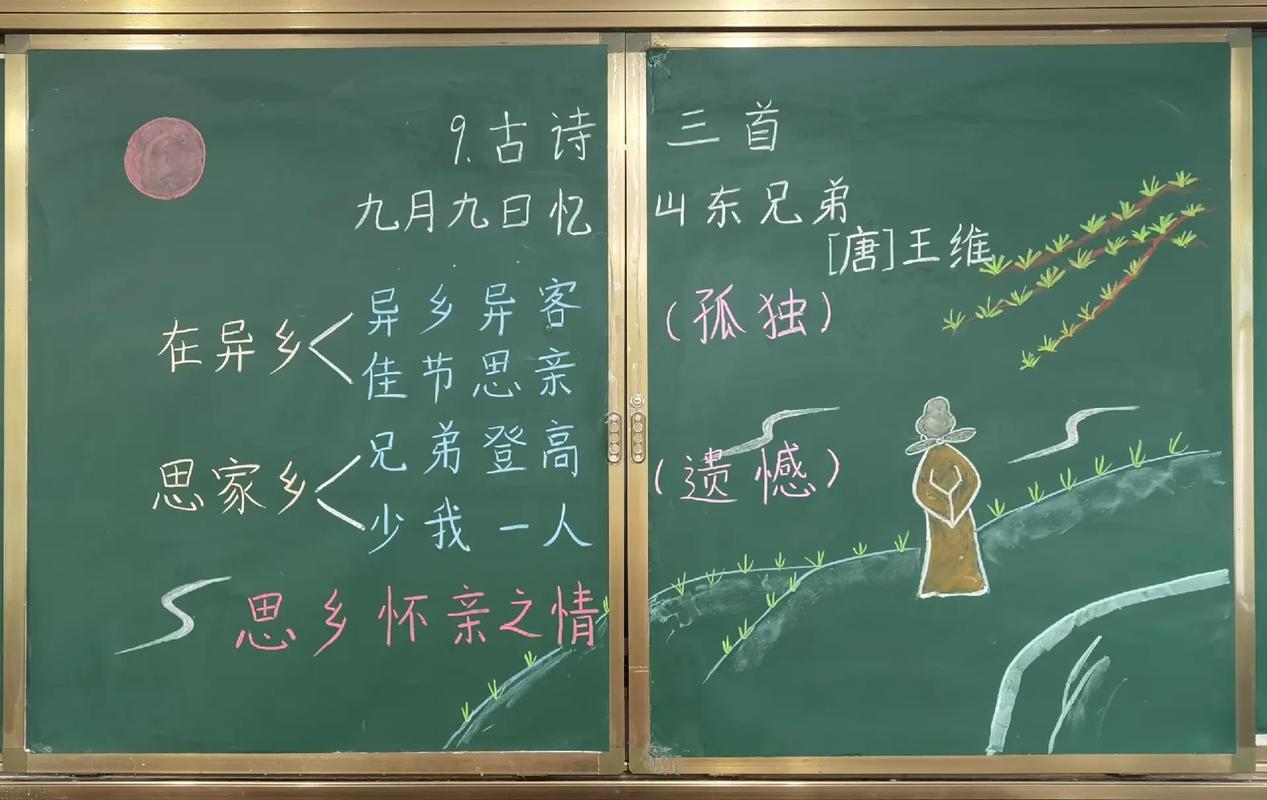 9.古诗三首
九月九日忆山东兄弟
[唐]王维
在异乡
异乡异客(孤独)
佳节思亲
思家乡
兄弟登高(遗憾)
少我一人
思乡怀亲之情